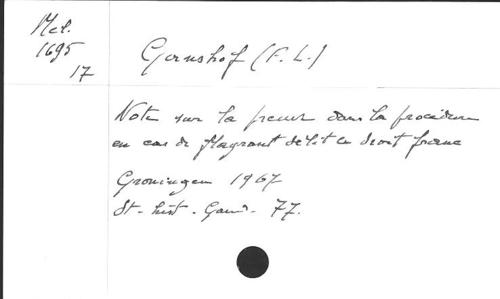 Mel.
1695
17
Gernshof (F. L.)
Note sur la preuve dans la procédure
en cas de flagrant délit en droit franc
Groningen 1967
St. hist. Gand. 77.